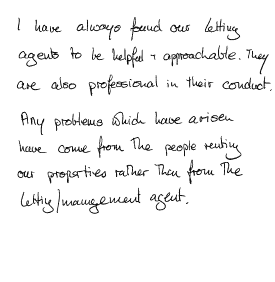 I have always found our letting
agents to be helpful + approachable. They
are also professional in their conduct.
Any problems which have arisen
have come from the people renting
our properties rather than from the
letting/management agent.